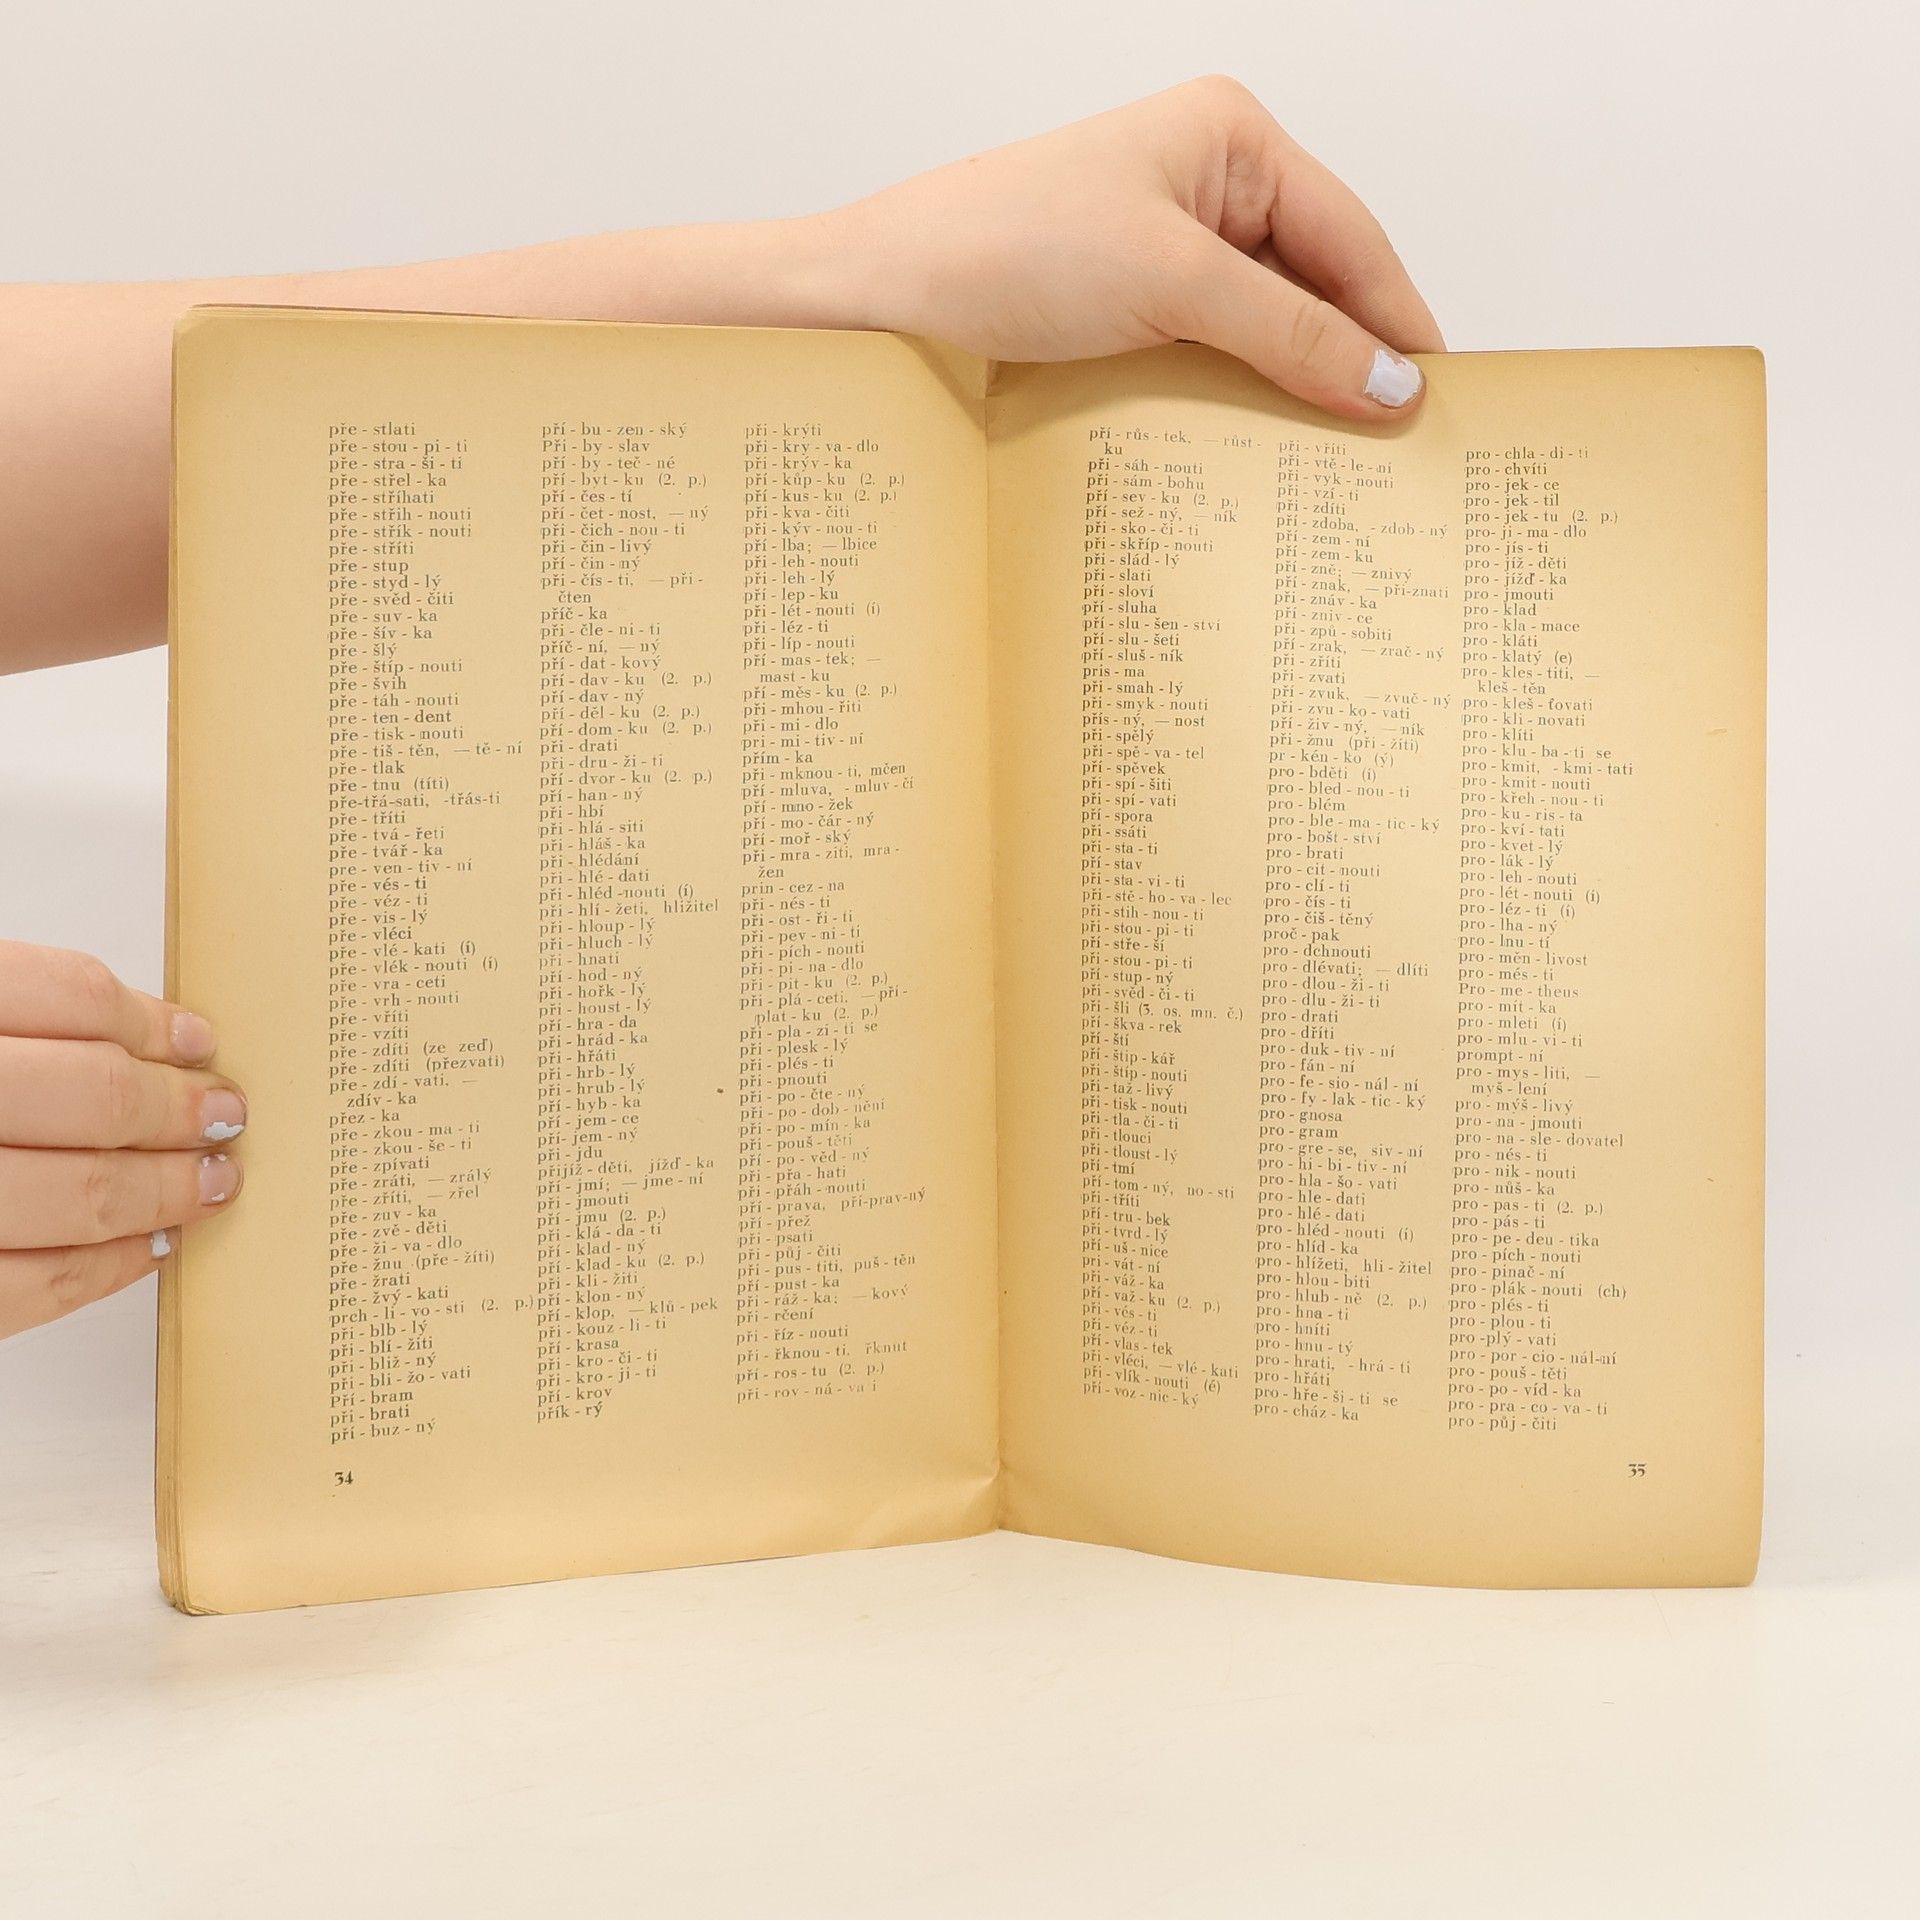 pře - stlati
pře - stou - pi - ti
pře - stra - ši - ti
pře - střel - ka
pře - stříhati
pře - střih - nouti
pře - střík - nouti
pře - stříti
pře - stup
pře - styd - lý
pře - svěd - čiti
pře - suv - ka
pře - šív - ka
pře - šlý
pře - štíp - nouti
pře - švih
pře - táh - nouti
pre - ten - dent
pře - tisk - nouti
pře - tiš - těn, — tě - ní
pře - tlak
pře - tnu (títi)
pře-třá-sati, -třás-ti
pře - tříti
pře - tvá - řeti
pře - tvář - ka
pre - ven - tiv - ní
pře - vés - ti
pře - véz - ti
pře - vis - lý
pře - vléci
pře - vlé - kati (í)
pře - vlék - nouti (í)
pře - vra - ceti
pře - vrh - nouti
pře - vříti
pře - vzíti
pře - zdíti (ze zeď)
pře - zdíti (přezvati)
pře - zdí - vati, —
zdív - ka
přez - ka
pře - zkou - ma - ti
pře - zkou - še - ti
pře - zpívati
pře - zráti, — zrálý
pře - zříti, — zřel
pře - zuv - ka
pře - zvě - děti
pře - ži - va - dlo
pře - žnu (pře - žíti)
pře - žrati
pře - žvý - kati
prch - li - vo - sti (2. p.)
při - blb - lý
při - blí - žiti
při - bliž - ný
při - bli - žo - vati
Pří - bram
při - brati
pří - buz - ný
34
pří - bu - zen - ský
Při - by - slav
pří - by - teč - né
pří - byt - ku (2. p.)
pří - čes - tí
pří - čet - nost, — ný
při - čich - nou - ti
při - čin - livý
pří - čin - ný
při - čís - ti, — při -
čten
příč - ka
při - čle - ni - ti
příč - ní, — ný
pří - dat - kový
pří - dav - ku (2. p.)
pří - dav - ný
pří - děl - ku (2. p.)
pří - dom - ku (2. p.)
při - drati
při - dru - ži - ti
pří - dvor - ku (2. p.)
pří - han - ný
při - hbí
při - hlá - siti
při - hláš - ka
při - hlédání
při - hlé - dati
při - hléd -nouti (í)
při - hlí - žeti, hližitel
při - hloup - lý
při - hluch - lý
při - hnati
pří - hod - ný
při - hořk - lý
při - houst - lý
pří - hra - da
při - hrád - ka
při - hřáti
při - hrb - lý
při - hrub - lý
pří - hyb - ka
pří - jem - ce
pří- jem - ný
při - jdu
přijíž - děti, jížď - ka
pří - jmí; — jme - ní
při - jmouti
pří - jmu (2. p.)
při - klá - da - ti
pří - klad - ný
pří - klad - ku (2. p.)
při - kli - žiti
při - klon - ný
pří - klop, — klů - pek
při - kouz - li - ti
pří - krasa
při - kro - či - ti
při - kro - ji - ti
pří - krov
přík - rý
při - krýti
při - kry - va - dlo
při - krýv - ka
pří - kůp - ku (2. p.)
pří - kus - ku (2. p.)
při - kva - čiti
při - kýv - nou - ti
pří - lba; — lbice
při - leh - nouti
při - leh - lý
pří - lep - ku
při - lét - nouti (í)
při - léz - ti
při - líp - nouti
pří - mas - tek; —
mast - ku
pří - měs - ku (2. p.)
při - mhou - řiti
při - mi - dlo
pri - mi - tiv - ní
přím - ka
při - mknou - ti, mčen
pří - mluva, - mluv - čí
pří - mno - žek
pří - mo - čár - ný
pří - moř - ský
při - mra - ziti, mra -
žen
prin - cez - na
při - nés - ti
při - ost - ři - ti
při - pev - ni - ti
při - pích - nouti
při - pi - na - dlo
při - pit - ku (2. p.)
při - plá - ceti, — pří -
plat - ku (2. p.)
při - pla - zi - ti se
při - plesk - lý
při - plés - ti
při - pnouti
při - po - čte - ný
při - po - dob - nění
při - po - mín - ka
při - pouš - těti
pří - po - věd - ný
při - přa - hati
při - přáh - nouti
pří - prava, pří-prav-ný
pří - přež
při - psati
při - půj - čiti
při - pus - titi, puš - těn
pří - pust - ka
při - ráž - ka; — kový
při - rčení
při - říz - nouti
při - řknou - ti, řknut
pří - ros - tu (2. p.)
při - rov - ná - va i
pří - růs - tek, — růst -
ku
při - sáh - nouti
při - sám - bohu
pří - sev - ku (2. p.)
pří - sež - ný, — ník
při - sko - či - ti
při - skříp - nouti
při - slád - lý
při - slati
pří - sloví
pří - sluha
pří - slu - šen - ství
pří - slu - šeti
pří - sluš - ník
pris - ma
při - smah - lý
při - smyk - nouti
přís - ný, — nost
při - spělý
při - spě - va - tel
pří - spěvek
při - spí - šiti
při - spí - vati
pří - spora
při - ssáti
při - sta - ti
pří - stav
při - sta - vi - ti
při - stě - ho - va - lec
při - stih - nou - ti
při - stou - pi - ti
pří - stře - ší
při - stou - pi - ti
pří - stup - ný
při - svěd - či - ti
při - šli (3. os. mn. č.)
pří - škva - rek
pří - ští
při - štip - kář
při - štíp - nouti
při - taž - livý
při - tisk - nouti
při - tla - či - ti
při - tlouci
při - tloust - lý
pří - tmí
pří - tom - ný, no - sti
při - tříti
pří - tru - bek
při - tvrd - lý
pří - uš - nice
pri - vát - ní
při - váž - ka
pří - važ - ku (2. p.)
při - vés - ti
při - véz - ti
pří - vlas - tek
při - vléci, — vlé - kati
při - vlík - nouti (é)
pří - voz - nic - ký
při - vříti
při - vtě - le - ní
při - vyk - nouti
při - vzí - ti
při - zdíti
pří - zdoba, - zdob - ný
pří - zem - ní
pří - zem - ku
pří - zně; — znivý
pří - znak, — pří-znati
při - znáv - ka
pří - zniv - ce
při - způ - sobiti
pří - zrak, — zrač - ný
při - zříti
při - zvati
pří - zvuk, — zvuč - ný
při - zvu - ko - vati
pří - živ - ný, — ník
při - žnu (při - žíti)
pr - kén - ko (ý)
pro - bděti (í)
pro - bled - nou - ti
pro - blém
pro - ble - ma - tic - ký
pro - bošt - ství
pro - brati
pro - cit - nouti
pro - clí - ti
pro - čís - ti
pro - čiš - těný
proč - pak
pro - dchnouti
pro - dlévati; — dlíti
pro - dlou - ži - ti
pro - dlu - ži - ti
pro - drati
pro - dříti
pro - duk - tiv - ní
pro - fán - ní
pro - fe - sio - nál - ní
pro - fy - lak - tic - ký
pro - gnosa
pro - gram
pro - gre - se, siv - ní
pro - hi - bi - tiv - ní
pro - hla - šo - vati
pro - hle - dati
pro - hlé - dati
pro - hléd - nouti (í)
pro - hlíd - ka
pro - hlížeti, hli - žitel
pro - hlou - biti
pro - hlub - ně (2. p.)
pro - hna - ti
pro - hníti
pro - hnu - tý
pro - hrati, - hrá - ti
pro - hřáti
pro - hře - ši - ti se
pro - cház - ka
pro - chla - di - ti
pro - chvíti
pro - jek - ce
pro - jek - til
pro - jek - tu (2. p.)
pro- ji - ma - dlo
pro - jís - ti
pro - jíž - děti
pro - jížď - ka
pro - jmouti
pro - klad
pro - kla - mace
pro - kláti
pro - klatý (e)
pro - kles - titi, —
kleš - těn
pro - kleš - ťovati
pro - kli - novati
pro - klíti
pro - klu - ba - ti se
pro - kmit, - kmi - tati
pro - kmit - nouti
pro - křeh - nou - ti
pro - ku - ris - ta
pro - kví - tati
pro - kvet - lý
pro - lák - lý
pro - leh - nouti
pro - lét - nouti (í)
pro - léz - ti (í)
pro - lha - ný
pro - lnu - tí
pro - měn - livost
pro - més - ti
Pro - me - theus
pro - mít - ka
pro - mleti (í)
pro - mlu - vi - ti
prompt - ní
pro - mys - liti, —
myš - lení
pro - mýš - livý
pro - na - jmouti
pro - na - sle - dovatel
pro - nés - ti
pro - nik - nouti
pro - nůš - ka
pro - pas - ti (2. p.)
pro - pás - ti
pro - pe - deu - tika
pro - pích - nouti
pro - pinač - ní
pro - plák - nouti (ch)
pro - plés - ti
pro - plou - ti
pro -plý - vati
pro - por - cio - nál-ní
pro - pouš - těti
pro - po - víd - ka
pro - pra - co - va - ti
pro - půj - čiti
35